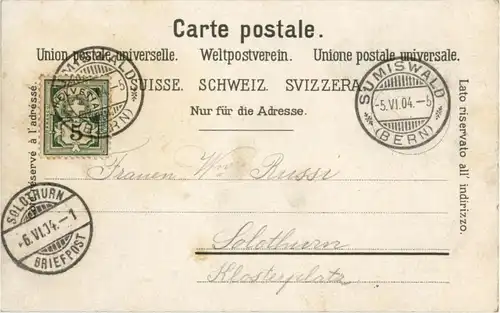 Carte postale.
Union postale universelle. Weltpostverein. Unione postale universale.
SUISSE. SCHWEIZ. SVIZZERA.
Nur für die Adresse.
réservé à l'adresse.
Lato riservato all' indirizzo.
SUMISWALD
-5.VI.04.-5
(BERN)
SUMISWALD
-5
(BERN)
HELVETIA
5
Frauen Wwe Russi
Solothurn
Klosterplatz
SOLOTHURN
-6.VI.04.-1
BRIEFPOST